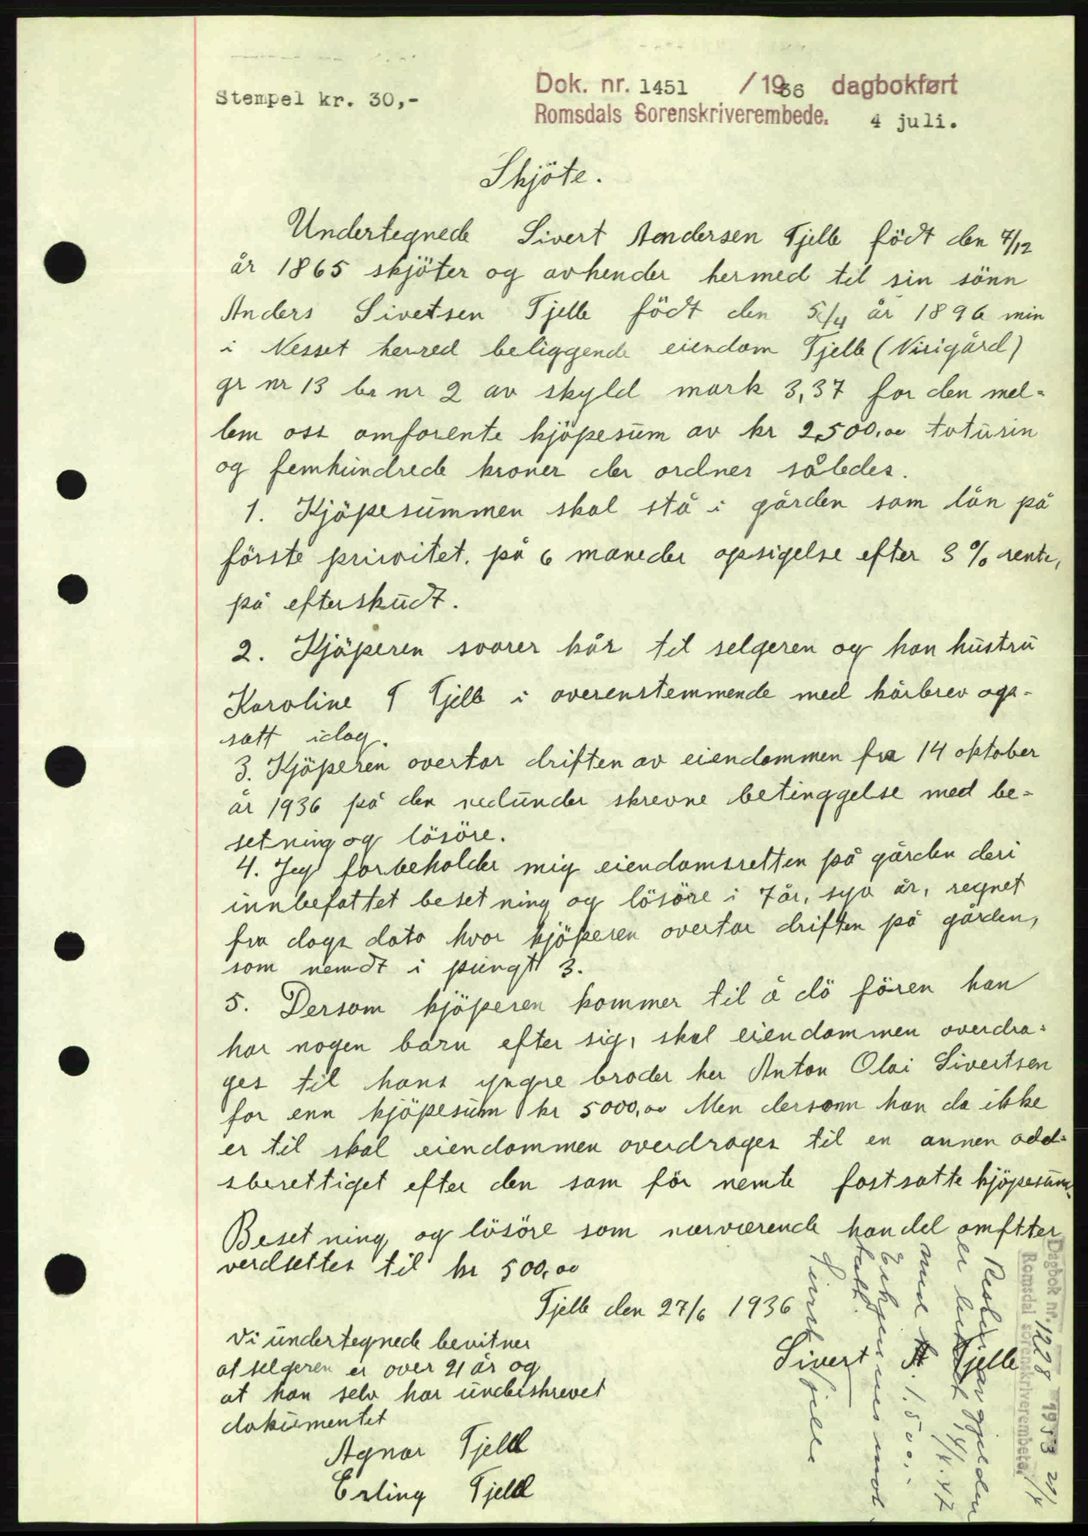 Stempel kr. 30,-
Dok. nr. 1451 / 1936 dagbokført
Romsdals Sorenskriverembede. 4 juli.
Skjöte.
Undertegnede Sivert Andersen Tjelle födt den 7/12
år 1865 skjöter og avhender hermed til sin sönn
Anders Sivetsen Tjelle födt den 5/4 år 1896 min
i Nesset herred beliggende eiendom Tjelle (Nisigård)
gr nr 13 br nr 2 av skyld mark 3,37 for den mel=
lem oss omforente kjöpesum av kr 2500,00 totusin
og femhundrede kroner der ordnes således.
1. Kjöpesummen skal stå i gården som lån på
förste prioitet. på 6 maneder opsigelse efter 3 % rente,
på efterskudt.
2. Kjöperen svarer kår til selgeren og han hustru
Karoline T Tjelle i overenstemmende med kårbrev op-
satt idag.
3. Kjöperen overtar driften av eiendommen fra 14 oktober
år 1936 på den nedunder skrevne betinggelse med be=
setning og lösöre.
4. Jeg forbeholder mig eiendomsretten på gården deri
innbefattet besetning og lösöre i 7 år, syv år, regnet
fra dags dato hvor kjöperen overtar driften på gården,
som nemdt i pungt 3.
5. Dersom kjöperen kommer til å dö fören han
har nogen barn efter sig, skal eiendommen overdra=
ges til hans yngre broder her Anton Olai Sivertsen
for enn kjöpesum kr 5000,00 Men dersom han da ikke
er til skal eiendommen overdrages til en annen odel=
sberettiget efter den som för nemte fastsatte kjöpesum.
Besetning og lösöre som nærværende handel omftter
verdsettes til kr 500,00
Tjelle den 27/6 1936
Sivert A Tjelle
Vi undertegnede bevitner
at selgeren er over 21 år og
at han selv har underskrevet
dokumentet
Agnar Tjelle
Erling Tjelle
Dagbok nr. 1228 1953 20/4
Romsdal sorenskriverembete
Resten av gjelden
er betalt 14/4.47
med kr. 1.500,-
Erkjennes mot
tatt.
Sivert Tjelle